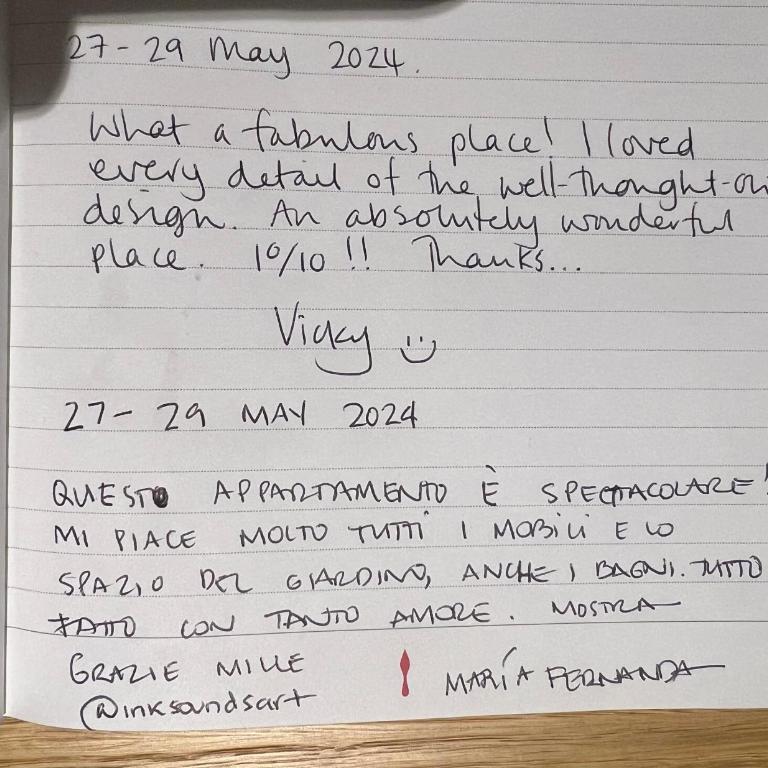 27-29 May 2024.
What a fabulous place! I loved
every detail of the well-thought-ou
design. An absolutely wonderful
place. 10/10 !! Thanks...
Vicky
27-29 MAY 2024
QUESTO APPARTAMENTO È SPECTACOLARE!
MI PIACE MOLTO TUTTI I MOBILI E LO
SPAZIO DEL GIARDINO, ANCHE I BAGNI. TUTTO
FATTO CON TANTO AMORE. MOSTRA
GRAZIE MILLE
MARÍA FERNANDA
@inksoundsart